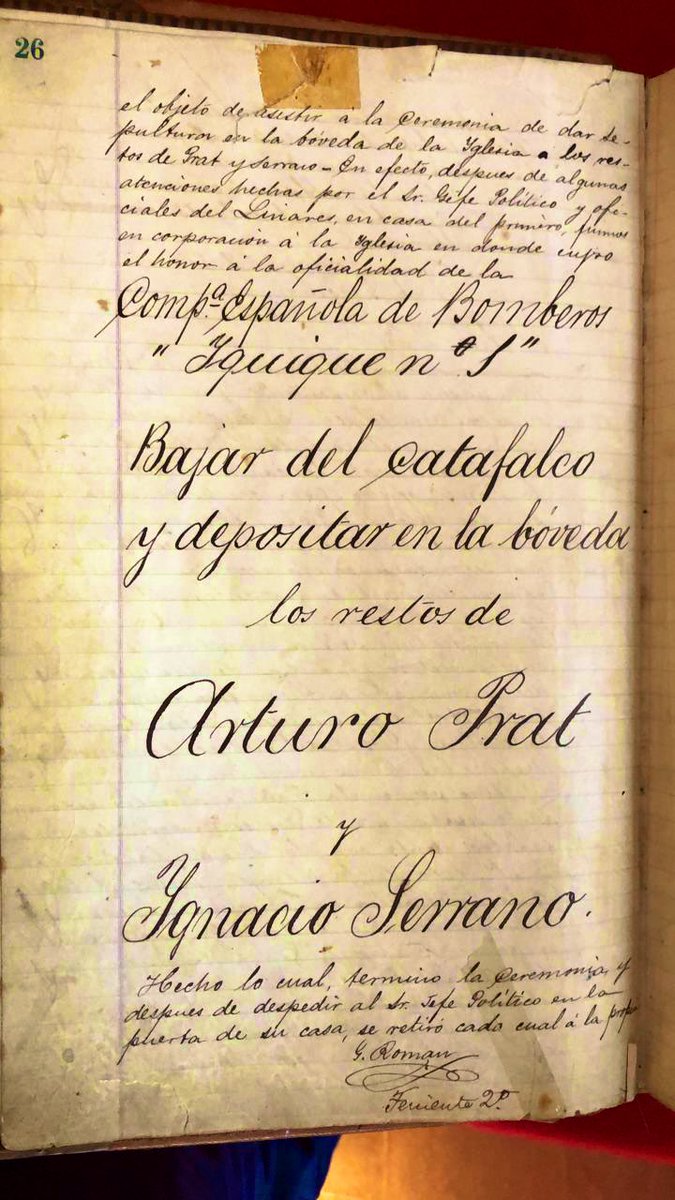 26
el objeto de asistir á la Ceremonia de dar se-
pultura en la bóveda de la Iglesia a los res-
tos de Prat y Serrano - En efecto, despues de algunas
atenciones hechas por el Sr. Gefe Político y ofi-
ciales del Linares, en casa del primero, fuimos
en corporación á la Iglesia en donde cupo
el honor á la oficialidad de la
Comp.ª Española de Bomberos
"Iquique nº 1"
Bajar del catafalco
y depositar en la bóveda
los restos de
Arturo Prat
y
Ignacio Serrano.
Hecho lo cual, termino la Ceremonia, y
despues de despedir al Sr. Jefe Político en la
puerta de su casa, se retiró cada cual á la
G. Roman
Teniente 2º